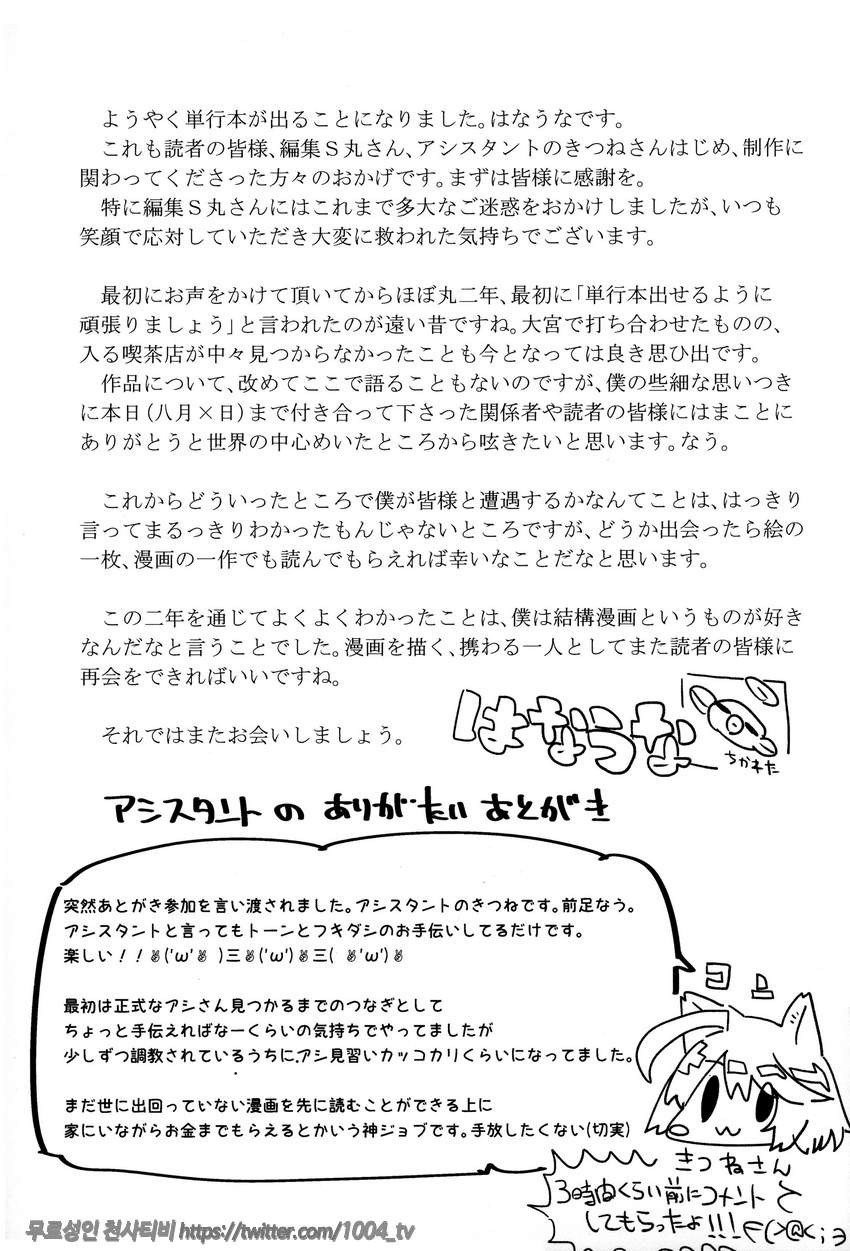 ようやく単行本が出ることになりました。はなうなです。
これも読者の皆様、編集S丸さん、アシスタントのきつねさんはじめ、制作に
関わってくださった方々のおかげです。まずは皆様に感謝を。
特に編集S丸さんにはこれまで多大なご迷惑をおかけしましたが、いつも
笑顔で応対していただき大変に救われた気持ちでございます。
最初にお声をかけて頂いてからほぼ丸二年、最初に「単行本出せるように
頑張りましょう」と言われたのが遠い昔ですね。大宮で打ち合わせたものの、
入る喫茶店が中々見つからなかったことも今となっては良き思ひ出です。
作品について、改めてここで語ることもないのですが、僕の些細な思いつき
に本日(八月×日)まで付き合って下さった関係者や読者の皆様にはまことに
ありがとうと世界の中心めいたところから呟きたいと思います。なう。
これからどういったところで僕が皆様と遭遇するかなんてことは、はっきり
言ってまるっきりわかったもんじゃないところですが、どうか出会ったら絵の
一枚、漫画の一作でも読んでもらえれば幸いなことだなと思います。
この二年を通じてよくよくわかったことは、僕は結構漫画というものが好き
なんだなと言うことでした。漫画を描く、携わる一人としてまた読者の皆様に
再会をできればいいですね。
それではまたお会いしましょう。
はなうな
ちかれた
アシスタントの ありがたい あとがき
突然あとがき参加を言い渡されました。アシスタントのきつねです。前足なう。
アシスタントと言ってもトーンとフキダシのお手伝いしてるだけです。
楽しい!!✌('ω'✌ )三✌('ω')✌三( ✌'ω')✌
最初は正式なアシさん見つかるまでのつなぎとして
ちょっと手伝えればなーくらいの気持ちでやってましたが
少しずつ調教されているうちに、アシ見習いカッコカリくらいになってました。
まだ世に出回っていない漫画を先に読むことができる上に
家にいながらお金までもらえるとかいう神ジョブです。手放したくない(切実)
コン
きつねさん
3時間くらい前にコメント
してもらったよ!!!
무료성인 천사티비 https://twitter.com/1004_tv